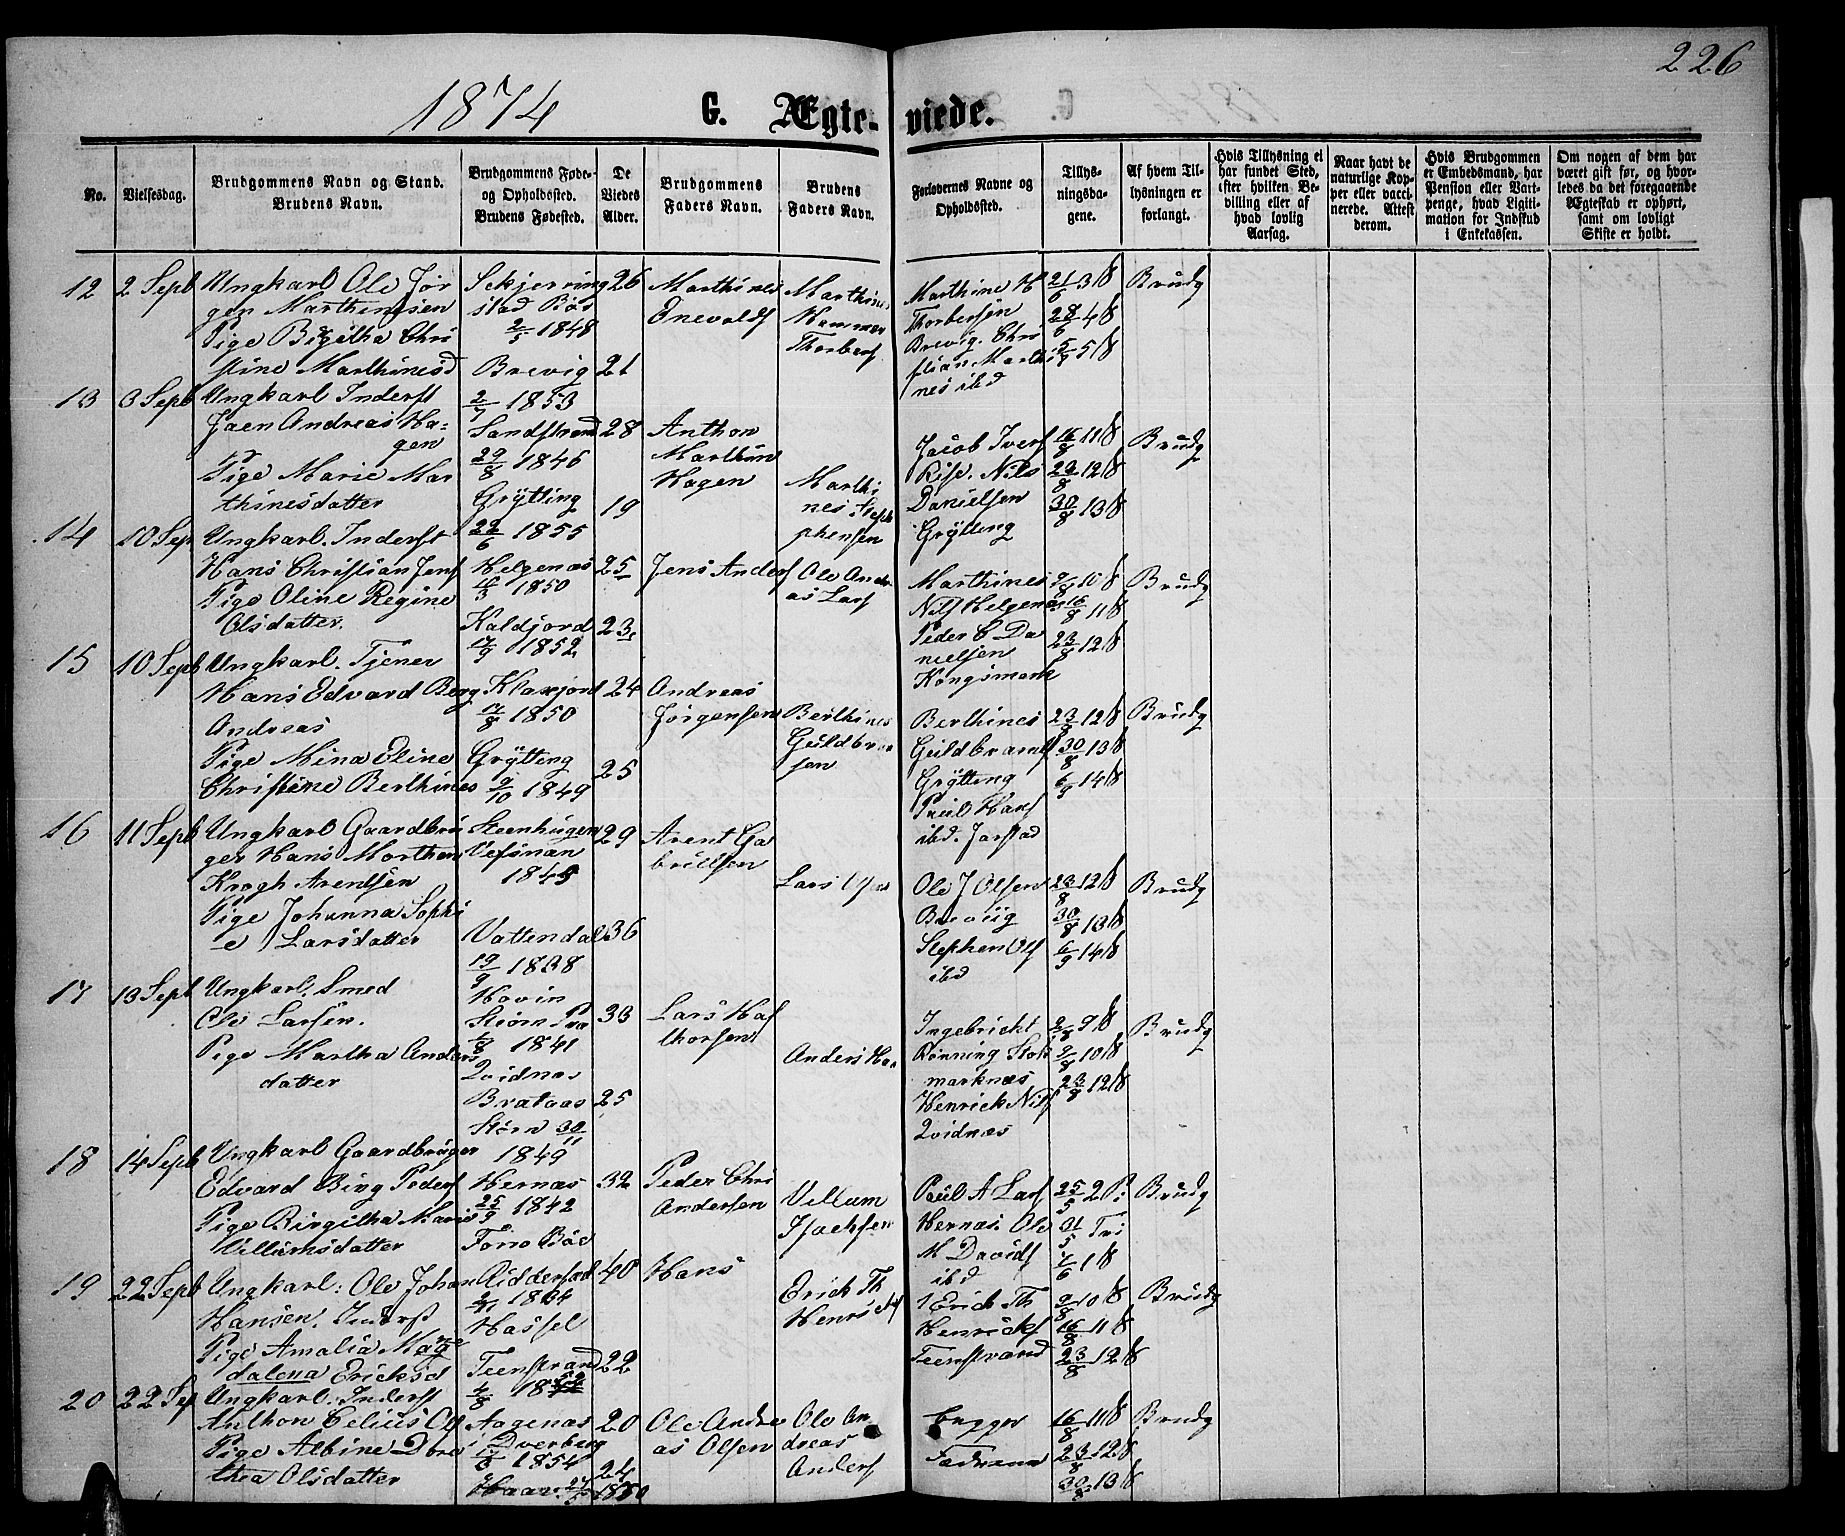 226
1874 G. Ægte- viede.
No.
Vielsesdag.
Brudgommens Navn og Stand.
Brudens Navn.
Brudgommens Føde-
og Opholdssted.
Brudens Fødested.
De
Viedes
Alder.
Brudgommens
Faders Navn.
Brudens
Faders Navn.
Forlovernes Navne og
Opholdssted.
Tillys-
ningsda-
gene.
Af hvem Til-
lysningen er
forlangt.
Hvis Tillysning ei
har fundet Sted,
efter hvilken Be-
villing eller af
hvad lovlig
Aarsag.
Naar havt de
naturlige Kop-
per eller vacci-
nerede. Attest
derom.
Hvis Brudgommen
er Embedsmand, har
Pension eller Vart-
penge, hvad Ligiti-
mation for Indskud
i Enkekassen.
Om nogen af dem har
været gift før, og hvor-
ledes da det foregaaende
Ægteskab er ophørt,
samt om lovligt
Skifte er holdt.
12 2 Sept Ungkarl Ole Jør
gen Marthinsen
Pige Birgitha Chri
stine Marthinesd
Skjerring
stad Bøs
2/5 1848
Brevig
26
21
Marthines
Enevolds
Marthines
Hammer
Thorbers
Marthine H
Thorbersen
Brevig. Chri
stian Marthi
nes ibd
21/6 3 S
28/6 4 S
5/7 5 S
Brudg
13 3 Sept Ungkarl Inderst
Jaen Andreas Ha=
gen
Pige Marie Mar
thinesdatter
2/7 1853
Sandstrand
29/8 1846
Grytting
28
19
Anthon
Marthin
Hagen
Marthi
nes Step
phensen
Jacob Ivers
Rise. Nils
Danielsen
Grytting
16/8 11 S
23/8 12 S
30/8 13 S
Brudg
14 10 Sep Ungkarl. Inderst
Hans Christian Jens
Pige Oline Regine
Olsdatter.
22/6 1855
Helgenæs
1850
Kaldjord
17/9 1852
25
23
Jens Anders
Ole Andr
as Lars
Marthines
Nils Helgenæs
Peder C Da
nielsen
Kongsmark
9/8 10 S
16/8 11 S
23/8 12 S
Brudg
15 10 Sept Ungkarl. Tjener
Hans Edvard Berg
Andreas
Pige Mina Eline
Christine Berthines
Klaxjord
1850
Grytting
9/10 1849
24
25
Andreas
Jørgensen
Berthines
Guldbran
sen
Berthines
Guldbrands
Grytting
Paul Hans
ibd. Jarstad
23/8 12 S
30/8 13 S
6/9 14 S
Brudg
16 11 Sept Ungkarl Gaardbrü
ger Hans Morthen
Krogh Arentsen
Pige Johanna Sophi
e Larsdatter
Steenhugen
Vefsnan
1845
Vattendal
19/9 1838
29
36
Arent Ga
brielsen
Lars Olsen
Ole J Olsen
Breviig
Stephen Ols
ibd
23/8 12 S
30/8 13 S
6/9 14 S
Brudg
17 13 Sept Ungkarl. Smed
Ole Larsen.
Pige Martha Anders
datter
Hovin
1841
Qvidnæs
Brataas
30/11
1849
33
25
Lars Haf
thorsen
Anders Han
Ingebricht
Rønning Stok
marknæs
Henrick Nils
Qvidnæs
2/8 9 S
9/8 10 S
23/8 12 S
Brudg
18 14 Sept Ungkarl Gaardbrüger
Edvard Bing Peders
Pige Birgitha Marie
Villumsdatter
Hernæs
25/9 1842
32
Peder Chri
Andersen
Villum
Isachsen
Paul A Lars
Hernæs. Ole
M Davids
ibd
25/5 2 P.
31/5 Tri
7/6 1 S
Brudg
19 22 Sept Ungkarl: Ole Johan
Hansen. Inderst
Pige Amalia Mag
dalena Ericksd
1834
Hassel
Teenstrand
40
22
Hans
Erich Th
Henricks
Erich Th
Henricks
Teenstrand
9/8 10 S
16/8 11 S
23/8 12 S
Brudg
20 22 Sep Ungkarl. Inderst
Anthon Celius Ols
Pige Albine Doro
thea Olsdatter
Aagenæs
Dverberg
1854
20
24
1850
Ole Andre
as Olsen
Ole An
dreas
Anders
begge
Fædrene
16/8 11 S
23/8 12 S
30/8 13 S
Brudg